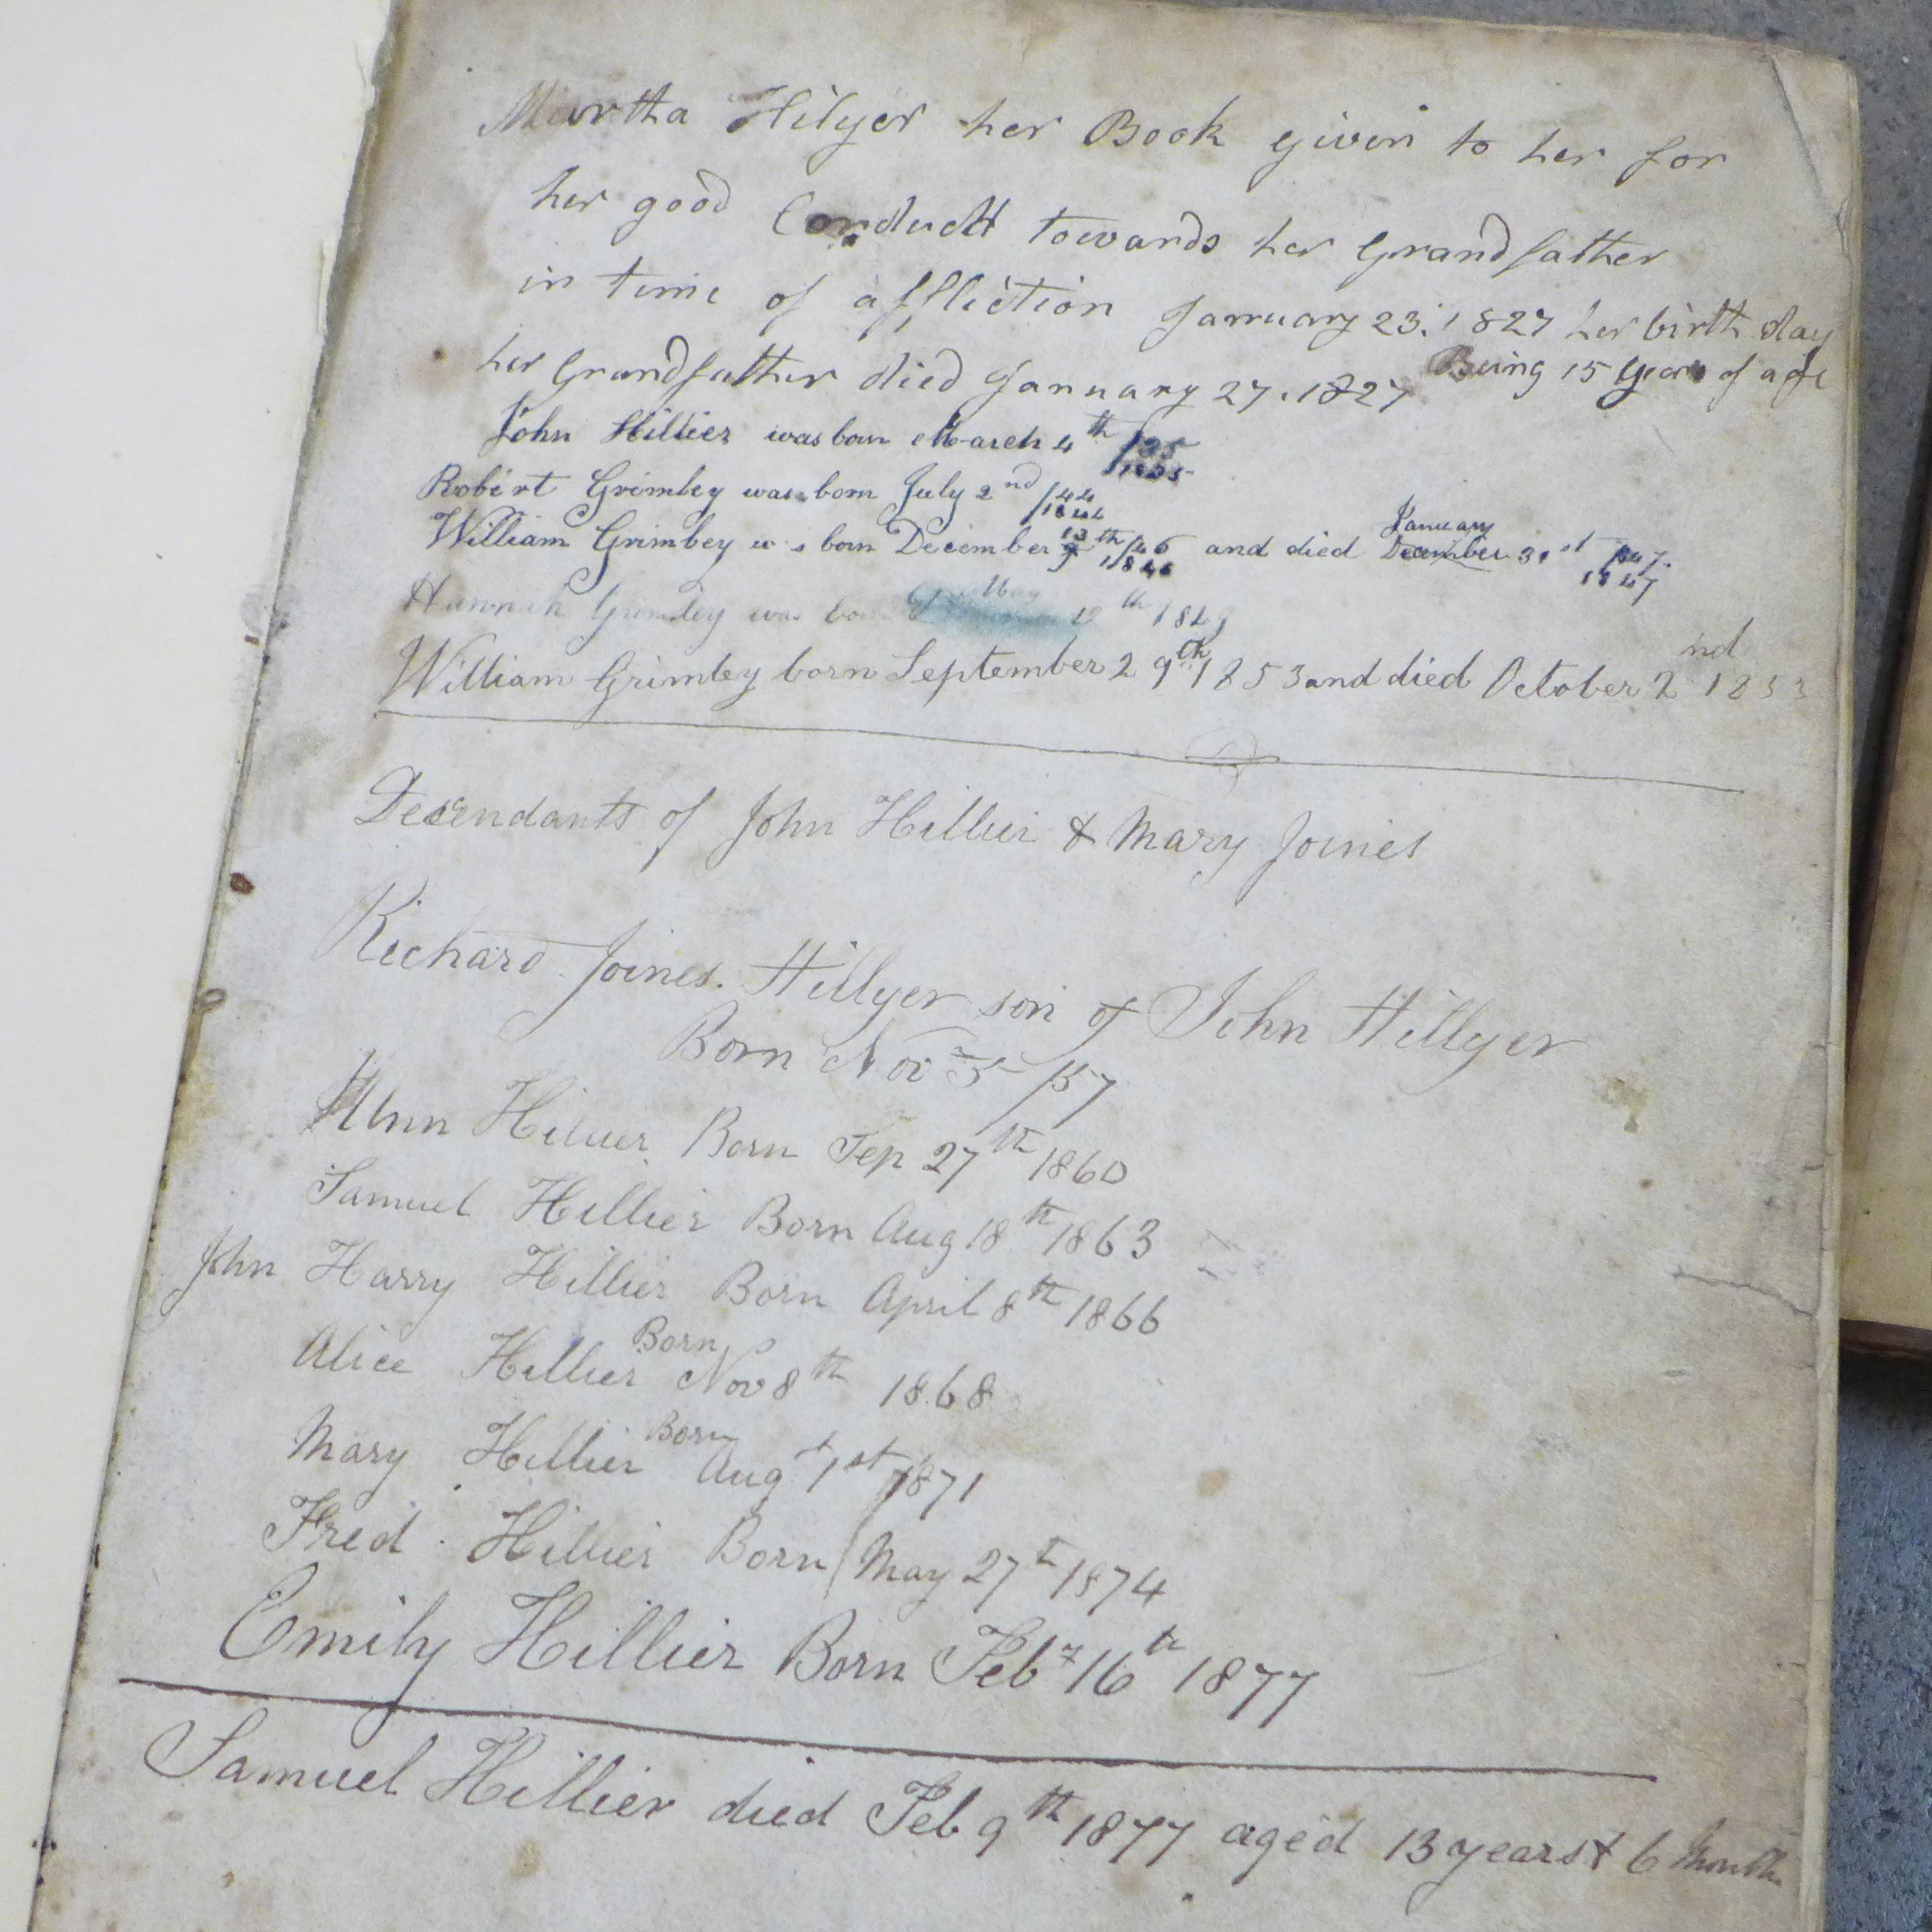 Martha Hilyer her Book given to her for
her good Conduckt towards her Grandfather
in time of affliction January 23. 1827 her birth day
Being 15 years of age
her Grandfather died January 27. 1827
John Hillier was born March 4th /25 1825
Robert Grimley was born July 2nd /44 1844
William Grimley was born December 13th /46 1846 and died January 31st /47. 1847
Hannah Grimley was born May 19th
William Grimley born September 29th 1853 and died October 2nd 1853
Decendants of John Hillier & Mary Joines
Richard Joines. Hillyer son of John Hillyer
Born Nov 5 /57
Ann Hillier Born Sep 27th 1860
Samuel Hillier Born Aug 18th 1863
John Harry Hillier Born April 8th 1866
Alice Hillier Born Nov 8th 1868
Mary Hillier Born Aug 1st 1871
Fred Hillier Born May 27th 1874
Emily Hillier Born Feby 16th 1877
Samuel Hillier died Feb 9th 1877 aged 13 years & 6 Month